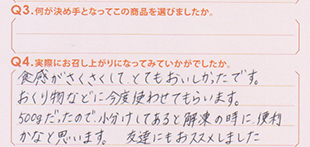 Q3.何が決め手となってこの商品を選びましたか。
Q4.実際にお召し上がりになってみていかがでしたか。
食感がさくさくして とてもおいしかったです。
おくり物などに今度使わせてもらいます。
500gだったので、小分けしてあると解凍の時に便利
かなと思います。 友達にもおススメしました